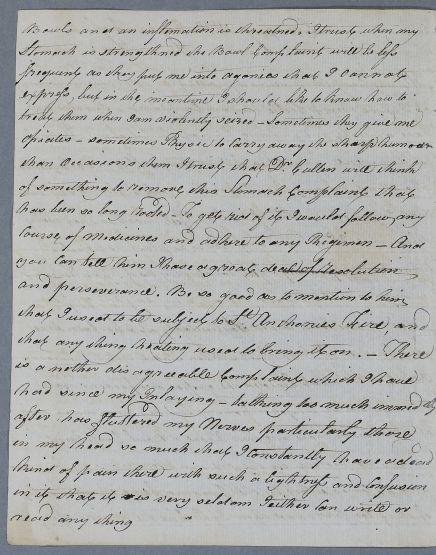 Bowls and an inflmation is threatned, I trust when my
Stomach is strengthned the Bowl Complaints will be less
frequent as they put me into agonies that I Cannot
express, but in the meantime I should like to know how to
treat them when I am violently seized - Sometimes they give me
Opiates - sometimes Physic to Carry away the sharp humour
than Occasions them I trust that Dr. Cullen will think
of something to remove this Stomach Complaint that
has been so long rooted - To get rid of it I would follow any
Course of Medicines and adhere to any Regimen - And
you Can tell him I have a great deal of Resolution
and perseverance. Be so good as to mention to him
that I used to be subject to St. Anthonies Fire and
that any thing heating used to bring it on. - There
is a nother disagreeable Complaint which I have
had since my Inlaying - talking too much immedtly
after has flustered my Nerves particularly those
in my head so much that I Constantly have a dead
kind of pain there with such a lightness and Confusion
in it that it is very seldom I either Can write or
read any thing